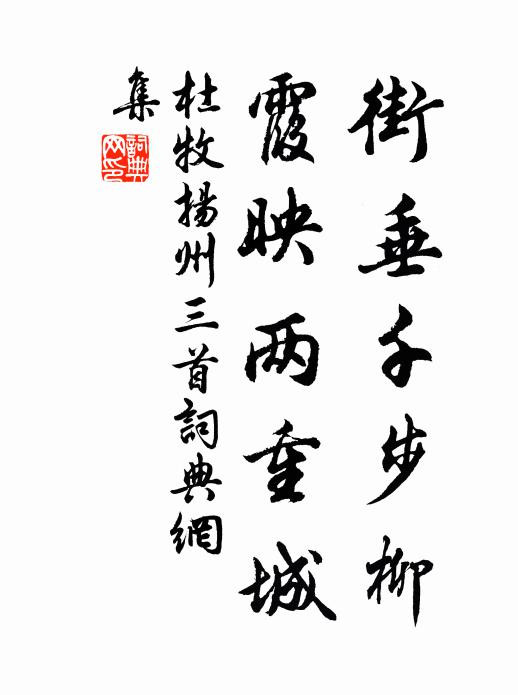 街垂千步柳
霞映两重城
杜牧揚州三首詞典網
集
詞典
网印